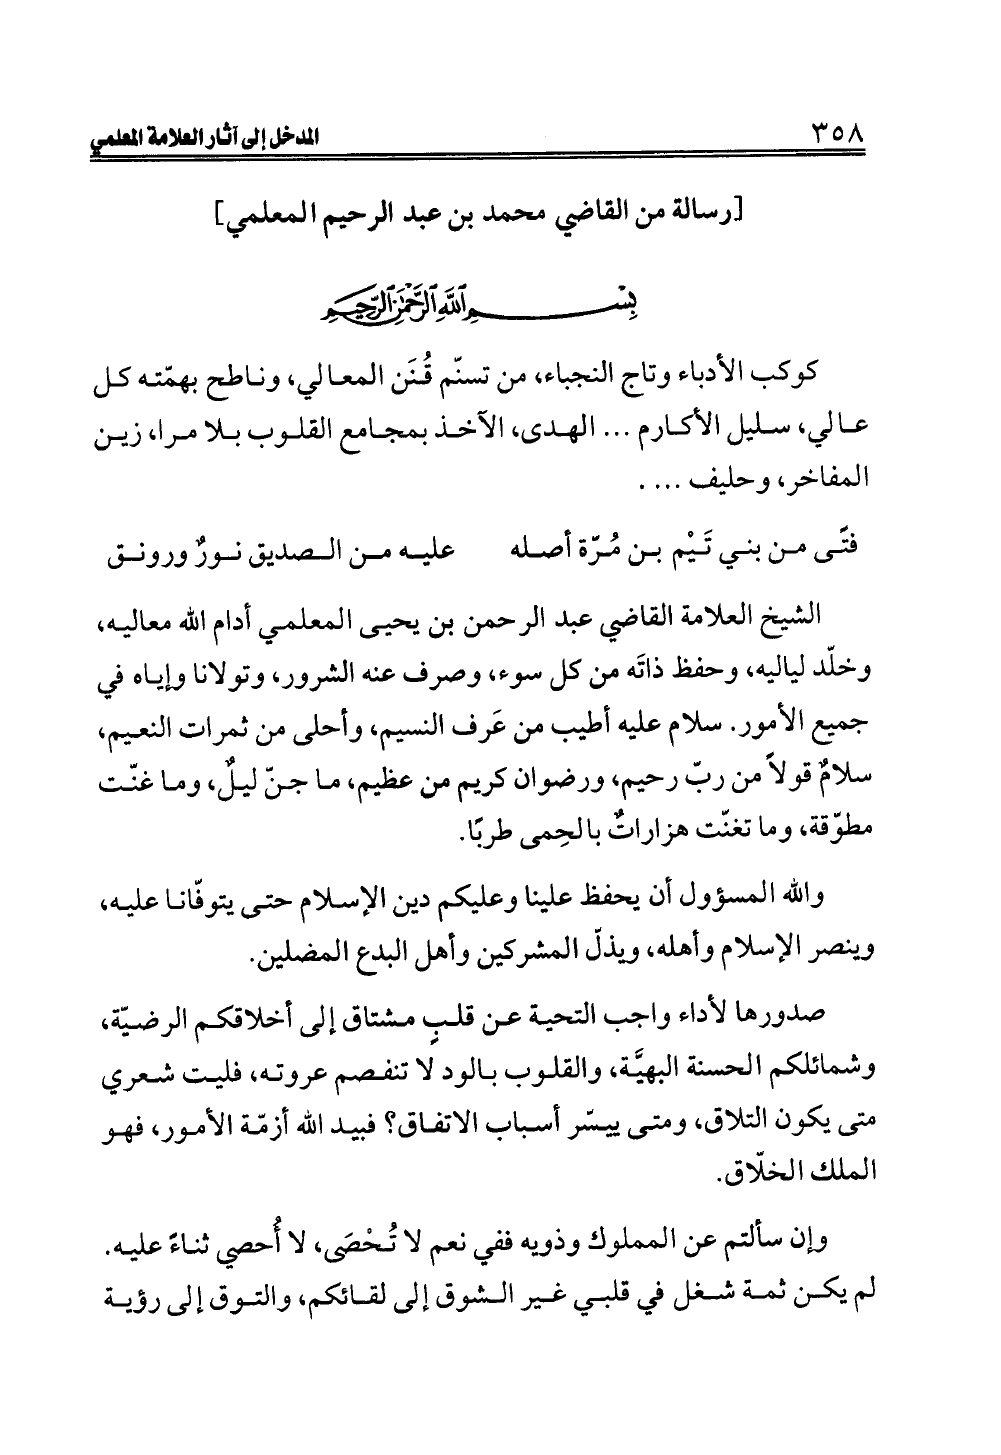 ٣٥٨ المدخل إلى آثار العلامة المعلمي
[رسالة من القاضي محمد بن عبد الرحيم المعلمي]
بِسْمِ اللَّهِ الرَّحْمَٰنِ الرَّحِيمِ
كوكب الأدباء وتاج النجباء، من تسنّم قُنَن المعالي، وناطح بهمّته كل
عالي، سليل الأكارم ... الهدى، الآخذ بمجامع القلوب بلا مرا، زين
المفاخر، وحليف ... .
فتًى من بني تَيْم بن مُرّة أصله عليه من الصديق نورٌ ورونق
الشيخ العلامة القاضي عبد الرحمن بن يحيى المعلمي أدام الله معاليه،
وخلّد لياليه، وحفظ ذاتَه من كل سوء، وصرف عنه الشرور، وتولانا وإياه في
جميع الأمور. سلام عليه أطيب من عَرف النسيم، وأحلى من ثمرات النعيم،
سلامٌ قولاً من ربّ رحيم، ورضوان كريم من عظيم، ما جنّ ليلٌ، وما غنّت
مطوّقة، وما تغنّت هزاراتٌ بالحِمى طربًا.
والله المسؤول أن يحفظ علينا وعليكم دين الإسلام حتى يتوفّانا عليه،
وينصر الإسلام وأهله، ويذلّ المشركين وأهل البدع المضلين.
صدورها لأداء واجب التحية عن قلبٍ مشتاق إلى أخلاقكم الرضيّة،
وشمائلكم الحسنة البهيَّة، والقلوب بالود لا تنفصم عروته، فليت شعري
متى يكون التلاق، ومتى ييسّر أسباب الاتفاق؟ فبيد الله أزمّة الأمور، فهو
الملك الخلّاق.
وإن سألتم عن المملوك وذويه ففي نعم لا تُحْصَى، لا أُحصي ثناءً عليه.
لم يكن ثمة شغل في قلبي غير الشوق إلى لقائكم، والتوق إلى رؤية